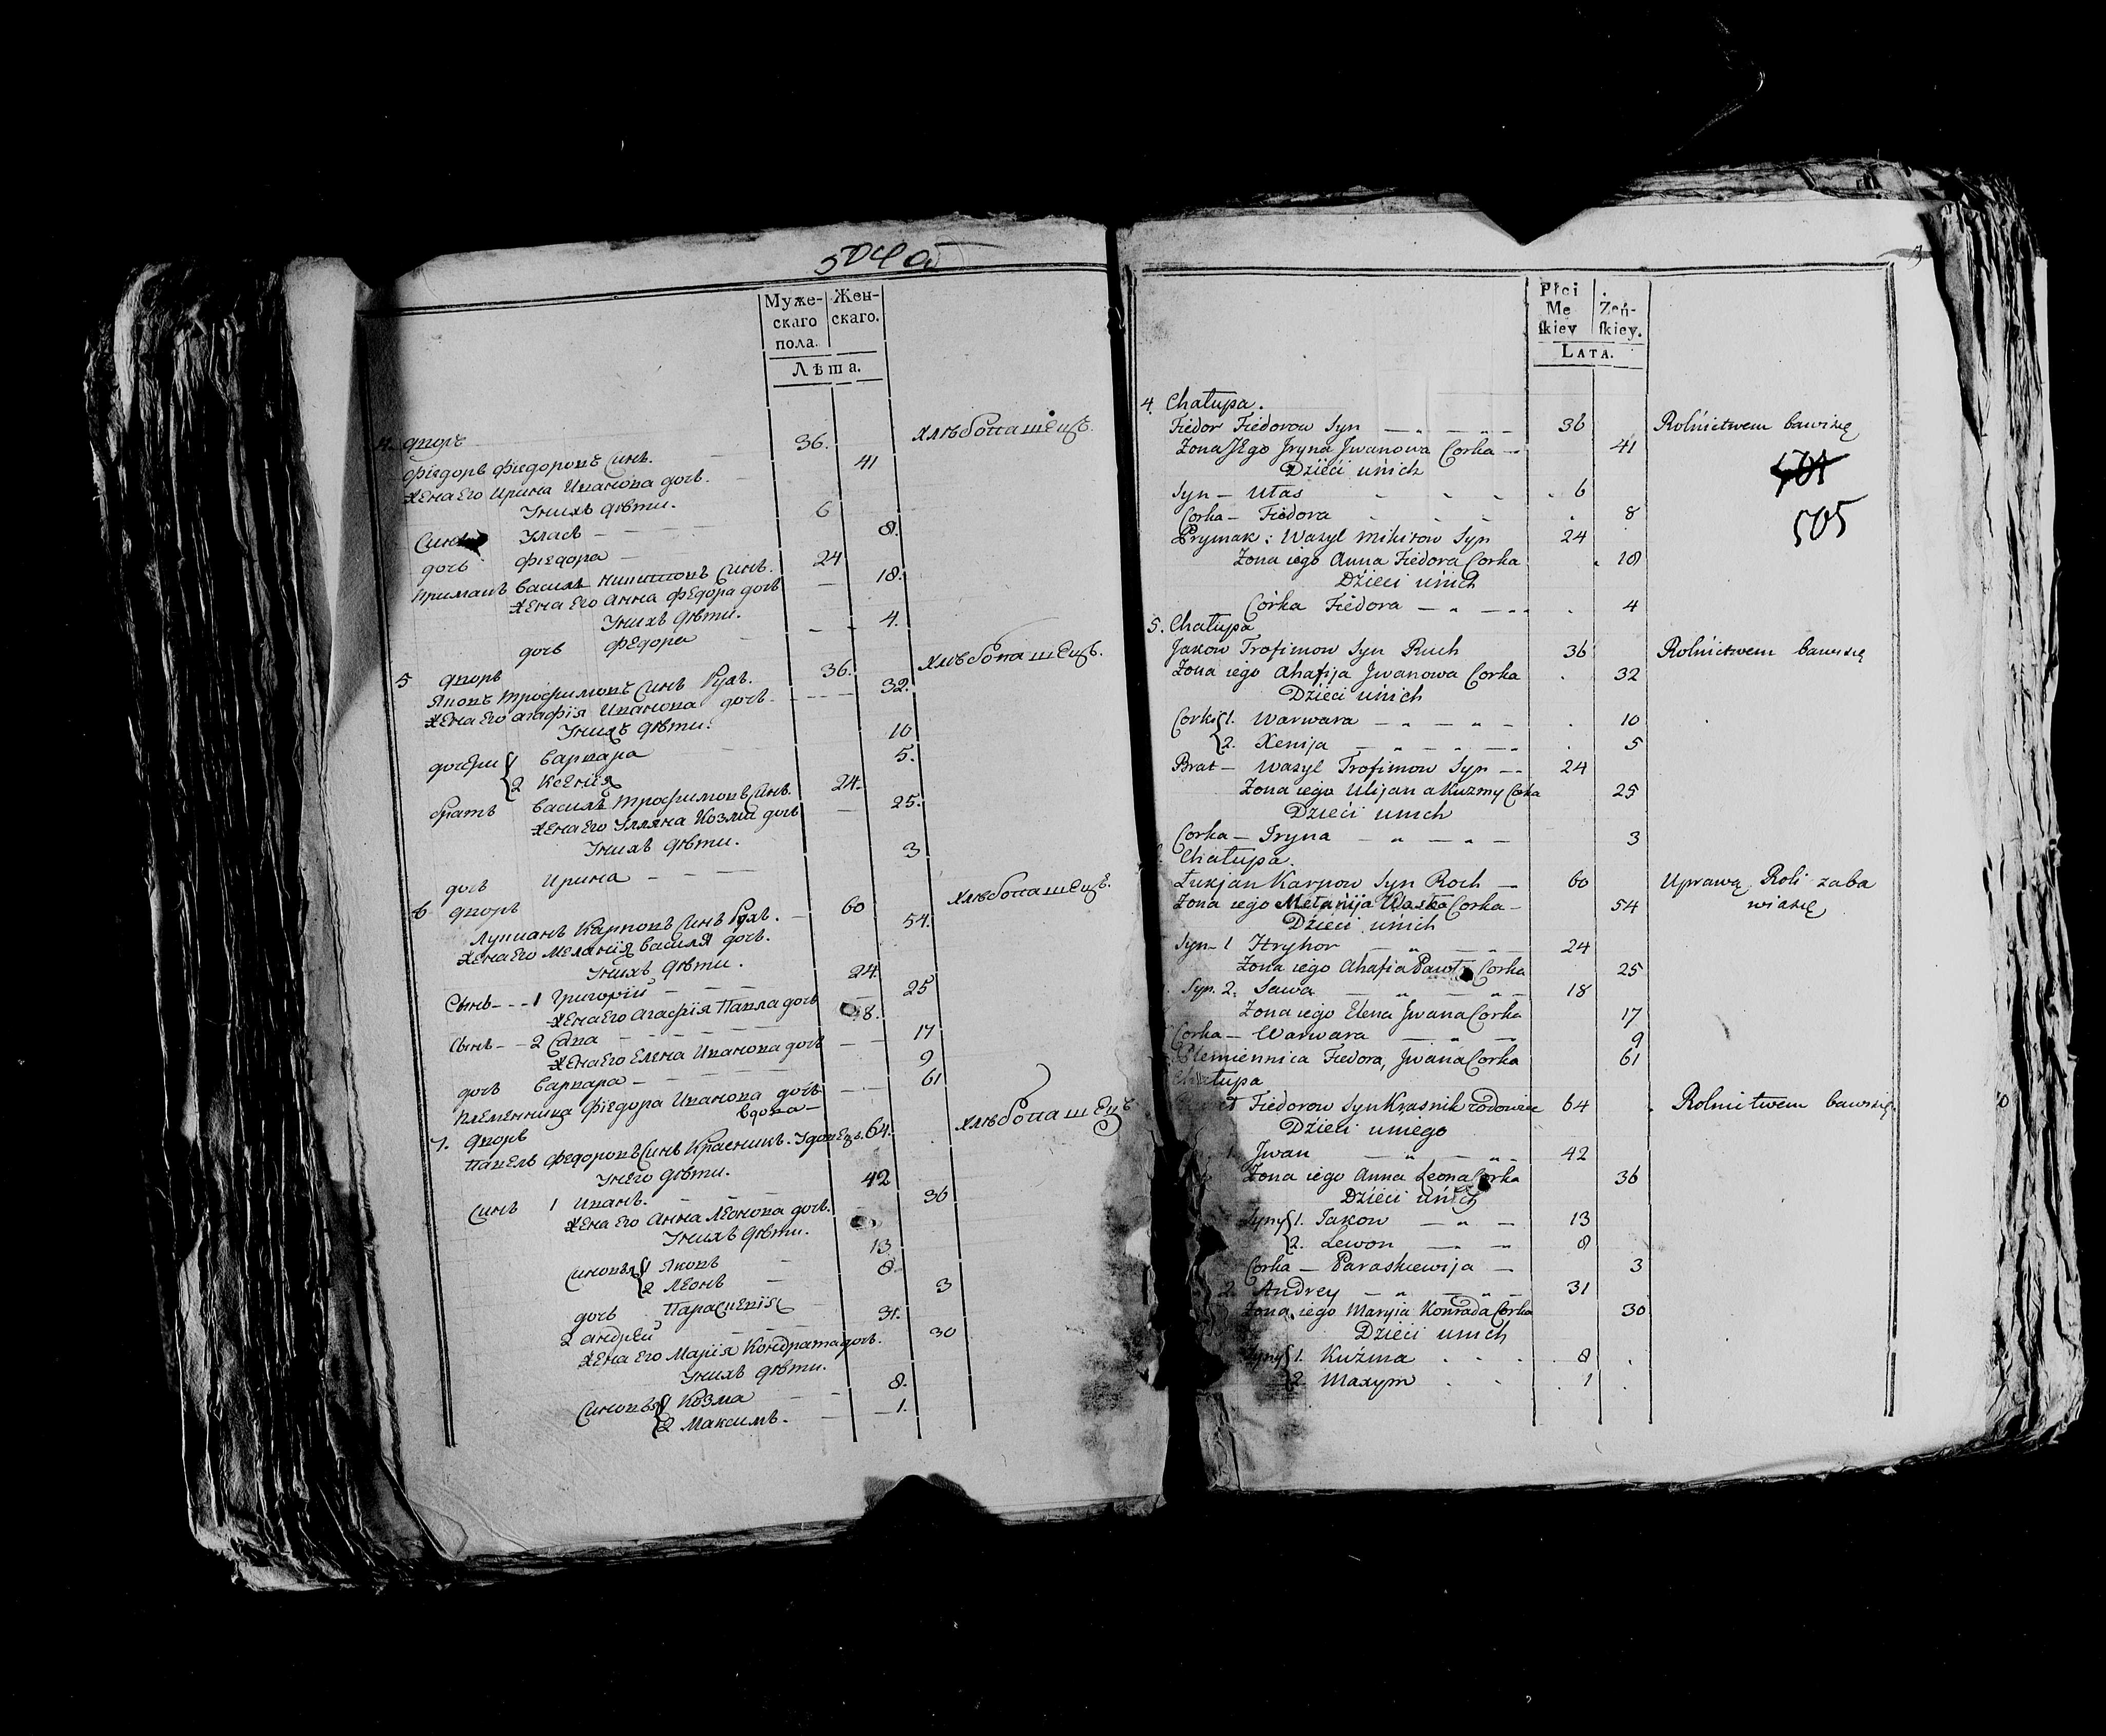 504 об
Муже-
скаго
пола.
Жен-
скаго.
Лѣта.
4. дворъ
Фіедоръ Фіедоровъ Синъ. 36. хлѣбопашецъ.
Жена Его Ирина Иванова дочь. 41
Унихъ дѣти.
Синъ Уласъ 6
дочь Фіедора 8.
Примакъ Василь Никитовъ Синъ. 24
Жена Его Анна Федора дочь 18.
Унихъ дѣти.
дочь Федора 4.
5 дворъ
Яковъ Трофимовъ Синъ Рухъ. 36. хлѣбопашецъ.
Жена Его Агафія Иванова дочь. 32.
Унихъ дѣти.
дочери 1 Варвара 10
2 Ксенія 5.
братъ Василь Трофимовъ Синъ. 24.
Жена Его Улляна Козми дочь 25.
Унихъ дѣти.
дочь Ирина 3
6 дворъ
Лукианъ Карповъ Синъ Рухъ. 60 хлѣбопашецъ.
Жена Его Меланія Василя дочь. 54.
Унихъ дѣти.
Сынъ 1 Григорій 24.
Жена Его Агафія Павла дочь 25
Сынъ 2 Сава 18.
Жена Его Елена Иванова дочь 17
дочь Варвара 9
племенница Фіедора Иванова дочь 61
вдова
7. дворъ
Павелъ Федоровъ Синъ Красникъ. Удовецъ. 64. хлѣбопашецъ
Унего дѣти.
Синъ 1 Иванъ. 42
Жена Его Анна Леонова дочь. 36
Унихъ дѣти.
Синовья 1 Яковъ 13
2 Леонъ 8
дочь Параскевія 3
2 Андрей 31.
Жена Его Марія Кондрата дочь. 30
Унихъ дѣти.
Синовья 1 Козма 8.
2 Максимъ. 1.
3
Płci
Mę
ſkiey
Żeń-
ſkiey.
LATA.
4. Chałupa.
Fiedor Fiedorow Syn 36 Rolnictwem bawi się
Zona JEgo Jryna Jwanowa Corka 41
Dzieci unich
505
Syn – Ułas 6
Corka – Fiedora 8
Prymak: Wasyl Mikitow Syn 24
Zona iego Anna Fiedora Corka 18
Dzieci unich
Córka Fiedora 4
5. Chałupa
Jakow Trofimow Syn Ruch 36 Rolnictwem bawi się
Zona iego Ahafija Jwanowa Corka 32
Dzieci unich
Corki 1. Warwara 10
2. Xenija 5
Brat – Wasyl Trofimow Syn 24
Zona iego Ulijana Kuzmy Corka 25
Dzieci unich
Corka – Iryna 3
Chałupa.
Łukjan Karpow Syn Roch 60 Uprawą Roli zaba
Zona iego Mełanija Waska Corka 54 wia się
Dzieci unich
Syn – 1 Hryhor 24
Zona iego Ahafia Pawła Corka 25
Syn. 2. Sawa 18
Zona iego Elena Jwana Corka 17
Corka – Warwara 9
Plemiennica Fiedora, Jwana Corka 61
Chałupa
Fiedorow Syn Krasnik wdowiec 64 Rolnictwem bawi się
Dzieci uniego
1. Jwan 42
Zona iego Anna Leona Corka 36
Dzieci unich
Syny 1. Jakow 13
2. Lewon 8
Corka – Paraskiewija 3
2. Andrey 31
Zona iego Maryia Konrada Corka 30
Dzieci unich
Syny 1. Kuźma 8
2. Maxym 1